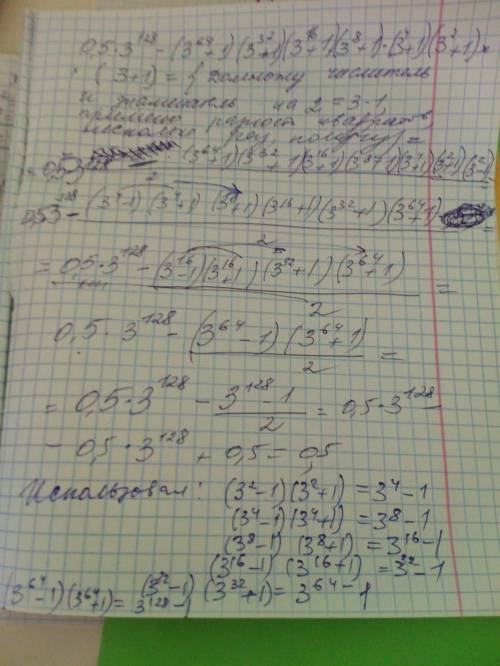 0,5·3¹²⁸ − (3⁶⁴+1)(3³²+1)(3¹⁶+1)(3⁸+1)·(3⁴+1)(3²+1)×
× (3+1) = { Домножу числитель
и знаменатель на 2 = 3−1,
применю разность квадратов,
несколько раз, получу } =
= 0,5·3¹²⁸ − (3⁶⁴+1)(3³²+1)(3¹⁶+1)(3⁸+1)(3⁴+1)(3²+1)(3²−1) / 2
0,5·3¹²⁸ − (3⁴−1)(3⁴+1)(3⁸+1)(3¹⁶+1)(3³²+1)(3⁶⁴+1) / 2
= 0,5·3¹²⁸ − (3¹⁶−1)(3¹⁶+1)(3³²+1)(3⁶⁴+1) / 2 =
0,5·3¹²⁸ − (3⁶⁴−1)(3⁶⁴+1) / 2 =
= 0,5·3¹²⁸ − (3¹²⁸−1) / 2 = 0,5·3¹²⁸ −
− 0,5·3¹²⁸ + 0,5 = 0,5
Использовал: (3²−1)(3²+1) = 3⁴−1
(3⁴−1)(3⁴+1) = 3⁸−1
(3⁸−1)(3⁸+1) = 3¹⁶−1
(3¹⁶−1)(3¹⁶+1) = 3³²−1
(3³²−1)(3³²+1) = 3⁶⁴−1
(3⁶⁴−1)(3⁶⁴+1) = 3¹²⁸−1